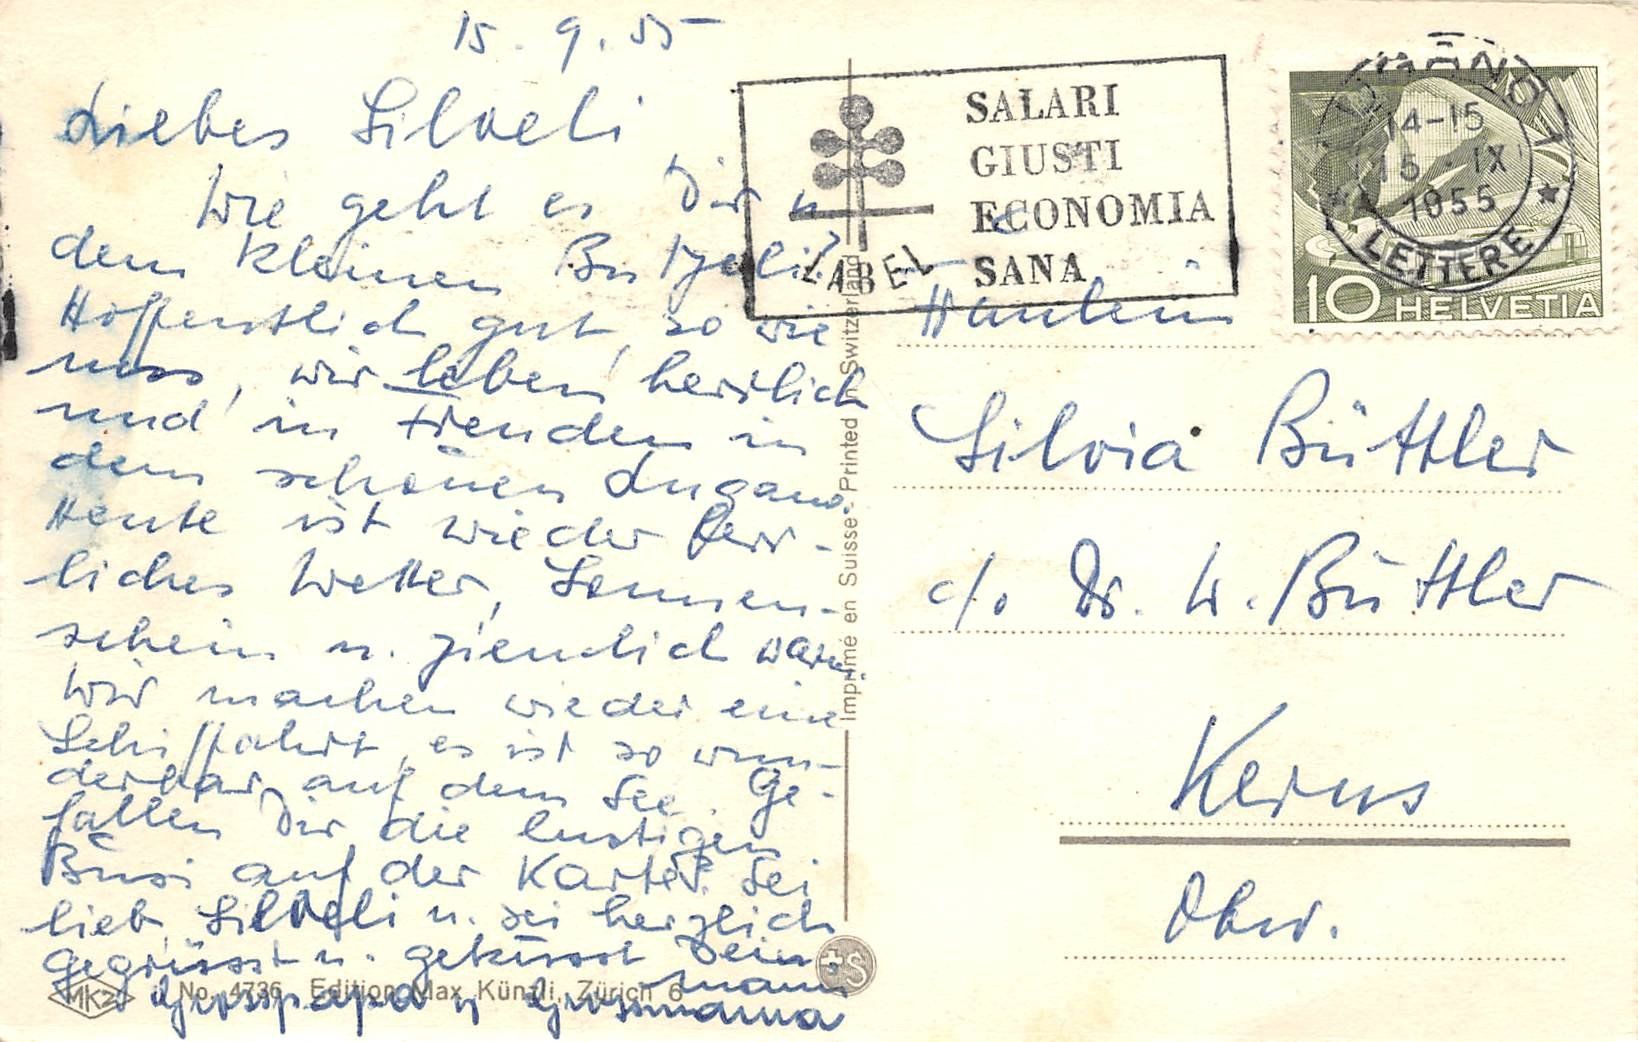 15. 9. 55
Liebes Silveli
Wie geht es Dir u
dem kleinen Butzeli?
Hoffentlich gut, so wie
uns, wir leben herrlich
und in Freuden in
dem schönen Lugano.
Heute ist wieder herr-
liches Wetter, Sonnen-
schein u. ziemlich warm.
Wir machen wieder eine
Schiffahrt, es ist so wun-
derbar auf dem See. Ge-
fallen Dir die lustigen
Büsi auf der Karte? Sei
lieb Silveli u. sei herzlich
gegrüsst u. geküsst Dein
Grosspapa u Grossmama
SALARI
GIUSTI
ECONOMIA
SANA
LABEL
14-15
15 · IX
1955
LETTERE
10 HELVETIA
Silvia Büttler
c/o Dr. W. Büttler
Kerns
Obw.
Imprimé en Suisse - Printed in Switzerland
MK2 No. 4736 Edition Max Künzli, Zürich 6
+S